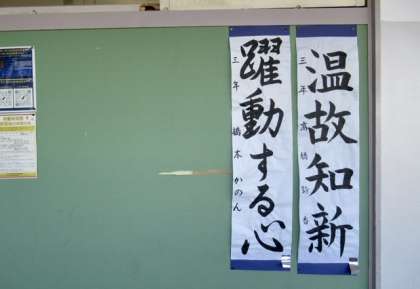 温故知新
三年 高橋
躍動する心
三年 橋本 かのん